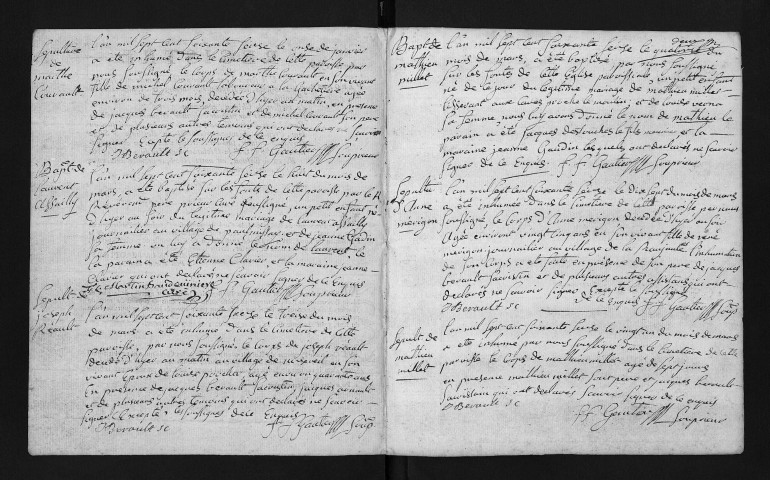 Sepulture
de
marthe
Couvault
l'an mil sept cent soixante seise le onse de janvier
a été inhumé dans le cimetiere de cette paroisse par
nous soussigné le corps de marthe Couvault en son vivant
fille de michel Couvault laboureur a la agée
environ de trois mois, decedée d'hyer au matin, en presence
de jacques berault sacristin et de michel Couvault son pere
et de plusieurs autres temoins qui ont declarés ne scavoir
signer excepté les soussignés de ce enquis
Berault sc f. f. Gautier Souprieur
Bapt. de
laurent
Assailly
l'an mil sept cent soixante seise le huit du mois de
mars, a été baptisé sur les fonts de cette paroisse par le
Reverend pere prieur curé soussigné, un petit enfant né
d'hyer au soir du legitime mariage de laurent assailly
journaillier au village de et de jeanne
sa femme on luy a donné le nom de laurent, le
parain a été Etienne Clavier et la maraine jeanne
Clavier qui ont declaré ne scavoir signer de ce Enquis
curé f. f. Gautier Souprieur
Sepult. de
joseph
Réault
l'an mil sept cent soixante seise le treise du mois
de mars a été inhumé dans le cimetiere de cette
paroisse, par nous soussigné le corps de joseph reault
decedé d'hyer au matin au village de en son
vivant Epoux de louise agé environ quarante ans
En presence de jacques berault sacristin, jacques
et de plusieurs autres temoins qui ont declarés ne scavoir
signer Excepté les soussignés de ce Enquis
Berault sc f. f. Gautier Soup.
Bapt. de
mathieu
millet
l'an mil sept cent soixante seise le quatorse du
mois de mars, a été baptisé par nous soussigné
sur les fonts de cette Eglise paroissiale, un petit enfant
né de ce jour du legitime mariage de mathieu millet
tisserant aux et de louise
sa femme nous luy avons donné le nom de mathieu le
parain a été jacques le fils et la
maraine jeanne Gaudin lesquels ont declarés ne scavoir
signer de ce Enquis f. f. Gautier Souprieur
Sepult.
d'Anne
merigon
l'an mil sept cent soixante seise le dix sept du mois de mars
a été inhumée dans le cimetiere de cette paroisse par nous
soussigné, le corps d'Anne merigon decedée d'hyer au soir
Agée environ vingt cinq ans en son vivant fille de rené
merigon journaillier au village de la l'inhumation
de son corps a été faite en presence de son pere de jacques
berault sacristin et de plusieurs autres assistans qui ont
declarés ne scavoir signer excepté le soussigné
Berault sc de ce Enquis f. f. Gautier Soup.
Sepult. de
mathieu
millet
l'an mil sept cent soixante seise le vingt un du mois de mars
a été inhumé par nous soussigné dans le cimetiere de cette
paroisse le corps de mathieu millet agé de sept jours
en presence mathieu millet son pere et jacques berault
sacristain qui ont declarés scavoir signer de ce enquis
Berault sc f. f. Gautier Souprieur